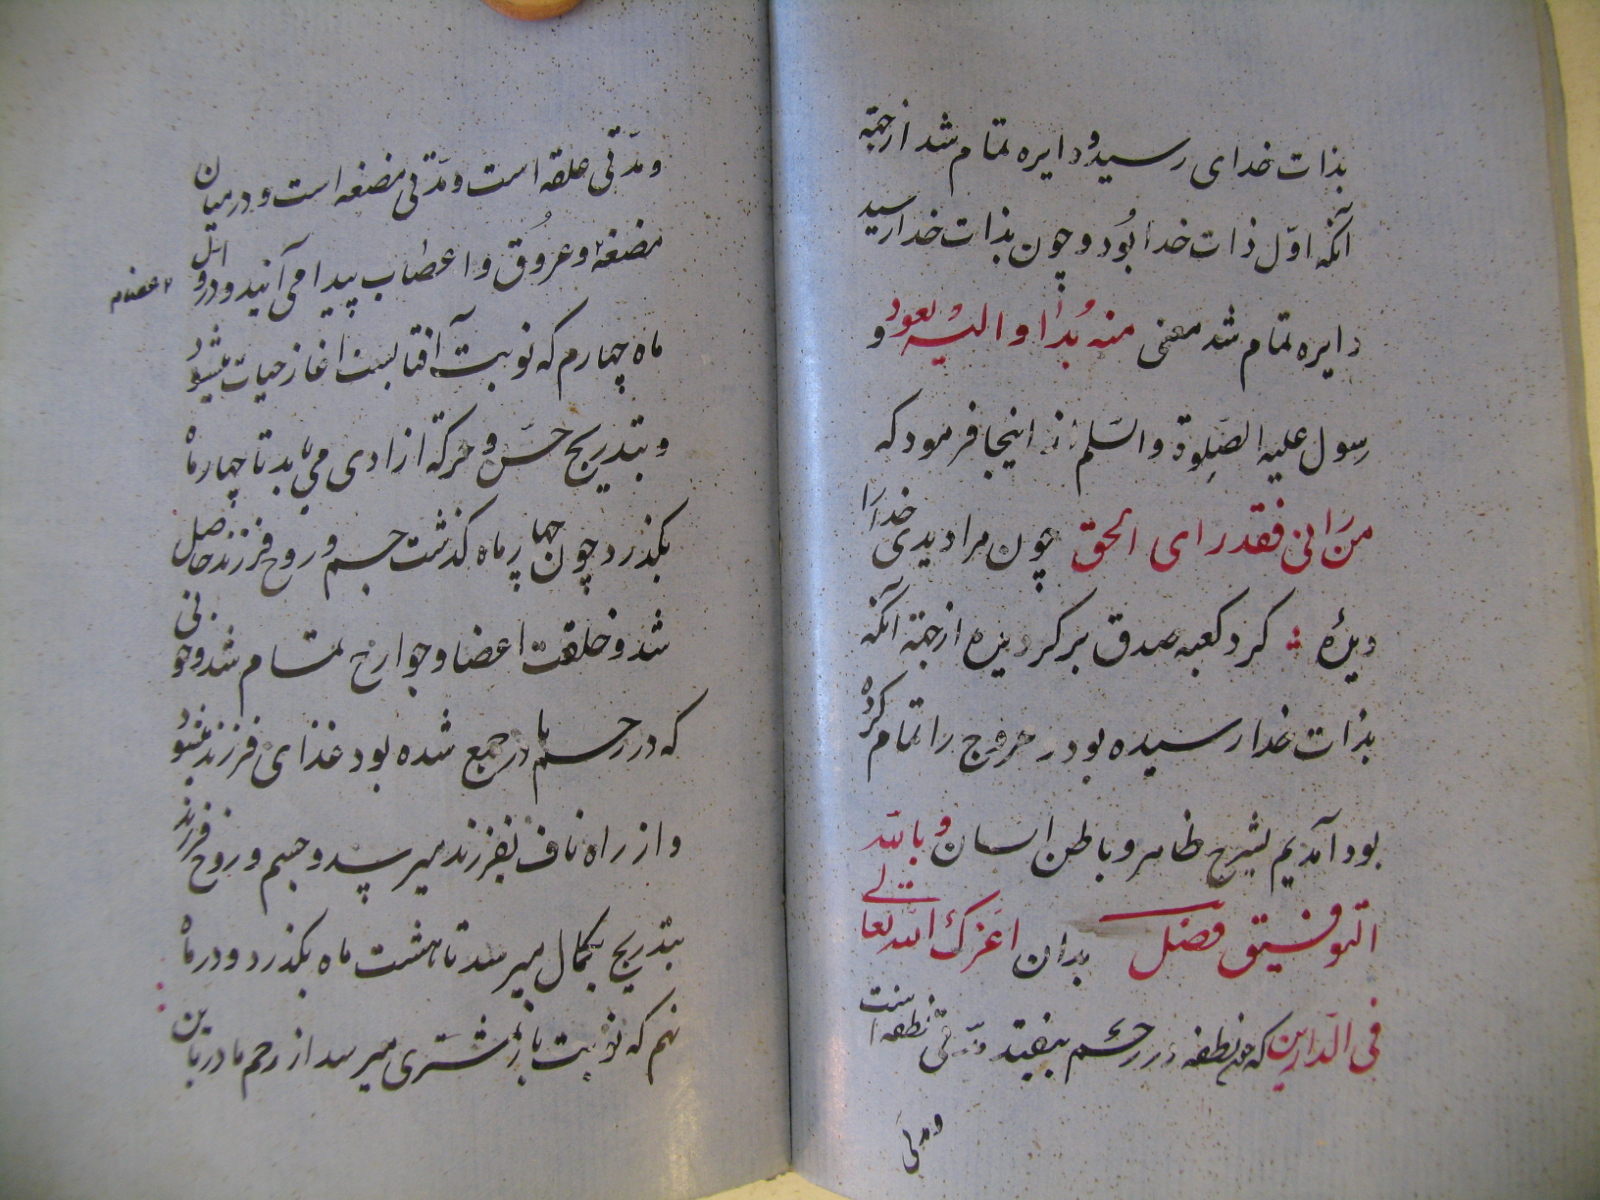 بذات خدای رسید و دایره تمام شد از جهة
آنکه اوّل ذات خدا بُود و چون بذات خدا رسید
دایره تمام شد معنی منه بُدا و الیه یعود و
رسول علیه الصّلوة والسّلم از اینجا فرمود که
من رَانی فقد رای الحق چون مرا دیدی خدا را
دیدۀ کرد کعبه صدق بر کردیده از جهة آنکه
بذات خدا رسیده بود و عروج را تمام کرده
بود آمدیم بشرح ظاهر و باطن انسان و بالله
التوفیق فصل بدان اعزک الله تعالی
فی الدّارین که چون نطفه در رحم بیفتد مدّتی نطفه است
و مدتی
و مدّتی علقه است و مدّتی مضغه است و در میان
مضغه و عروُق و اعصاب پیدا می آیند و در اول
عضام
ماه چهارم که نوبت آفتابست اغاز حیات میشود
و بتدریج حسّ و حرکة ارادی می یابد تا چهار ماه
بگذرد چون چهار ماه گذشت جسم و روح فرزند حاصل
شد و خلقت اعضا و جوارح تمام شد و خونی
که در رحم مادر جمع شده بود غذای فرزند میشود
و از راه ناف بفرزند میرسد و جسم و روح فرزند
بتدریج بکمال میرسد تا هشت ماه بگذرد و در ماه
نهم که نوبت باز بمشتری میرسد از رحم مادر باین